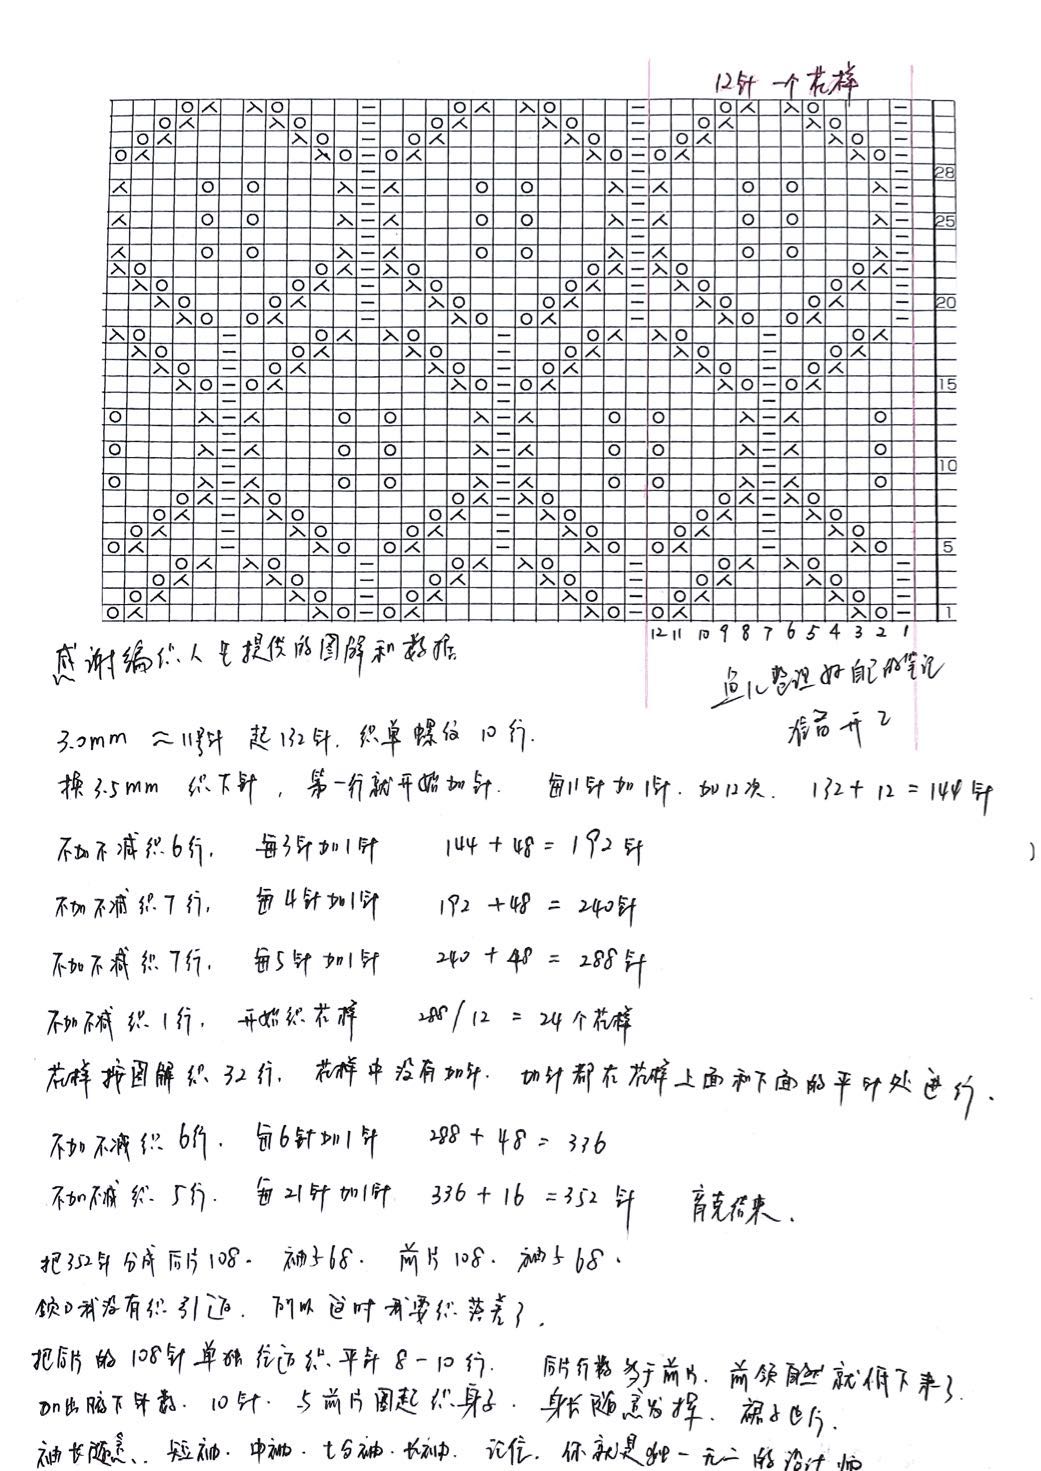 12针一个花样
28
25
20
15
10
5
1
12 11 10 9 8 7 6 5 4 3 2 1
感谢编织人生提供的图解和数据
鱼儿整理好自己的笔记
准备开工
3.0mm ≈ 11号针 起132针. 织单螺纹10行.
换3.5mm 织下针, 第一行就开始加针. 每11针加1针. 加12次. 132+12=144针
不加不减织6行, 每3针加1针 144+48=192针
不加不减织7行, 每4针加1针 192+48=240针
不加不减织7行, 每5针加1针 240+48=288针
不加不减织1行, 开始织花样 288/12=24个花样
花样按图解织32行, 花样中没有加针. 加针都在花样上面和下面的平针处进行.
不加不减织6行. 每6针加1针 288+48=336
不加不减织5行. 每21针加1针 336+16=352针 育克结束.
把352针分成后片108. 袖子68. 前片108. 袖子68.
领口我没有织引返, 所以这时我要织落差了.
把后片的108针单独往返织平针8-10行. 后片行数多于前片, 前领自然就低下来了.
加出腋下针数. 10针. 与前片圈起织身子. 身长随意发挥. 裙子也行.
袖长随意, 短袖. 中袖. 七分袖. 长袖. 记住, 你就是独一无二的设计师